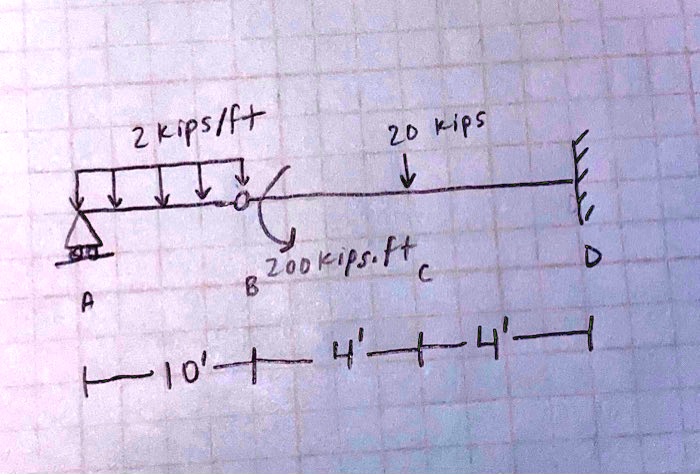 2 kips/ft
20 kips
200 kips.ft
A
B
C
D
10'
4'
4'